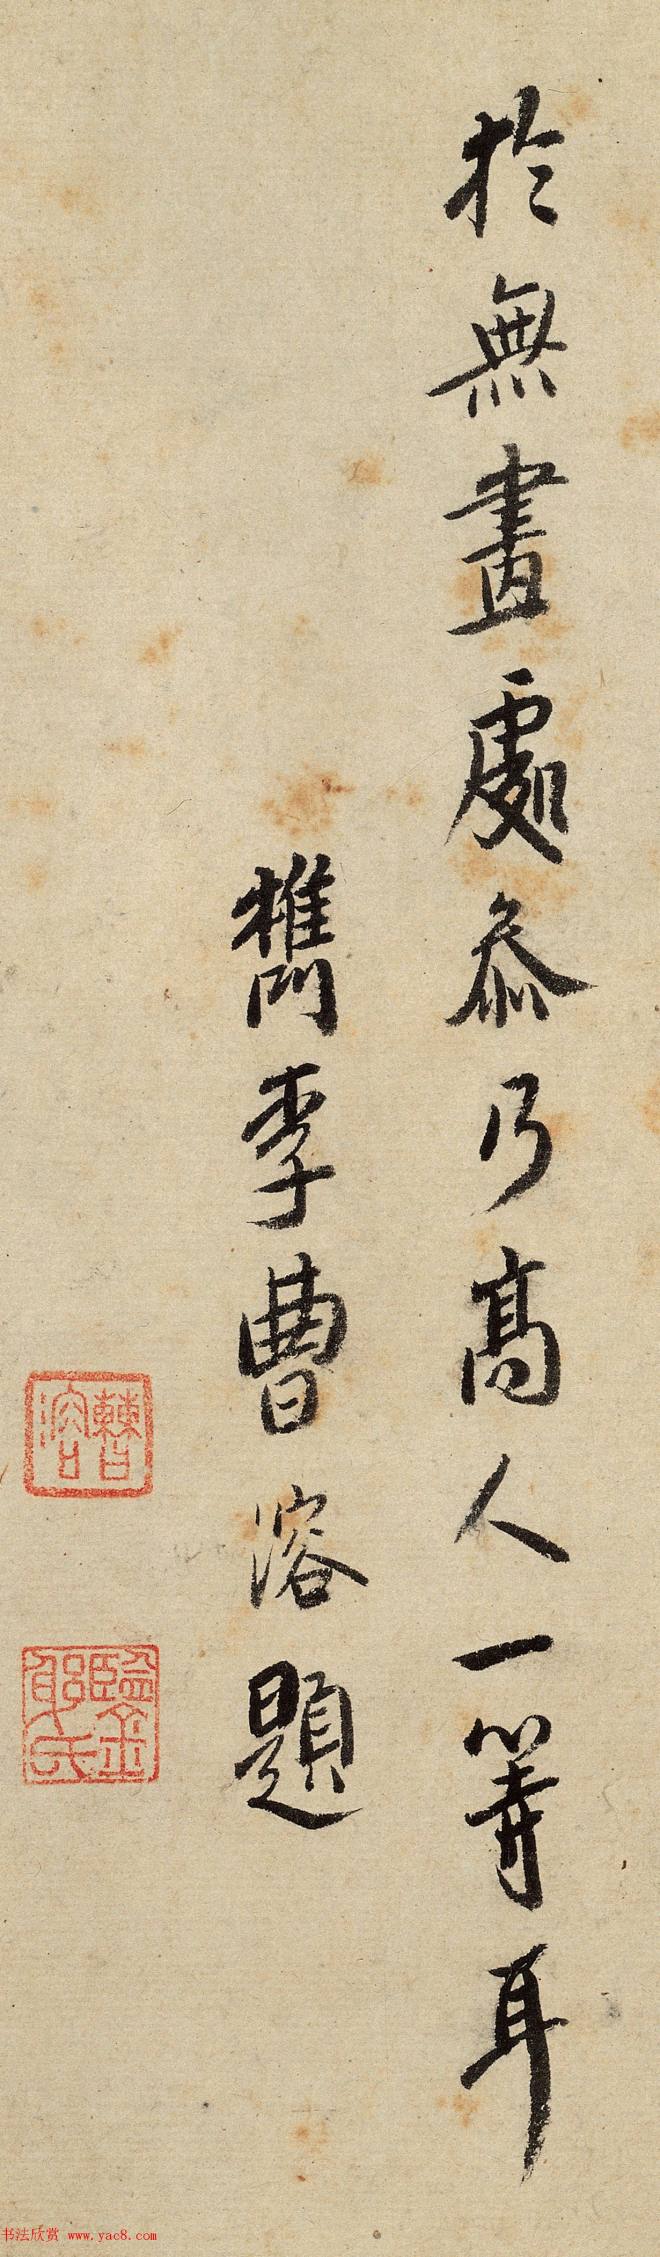 於無畫處叅乃高人一等耳
檇李曹溶題
曹溶
鉏金
書法欣赏 www.yac8.com